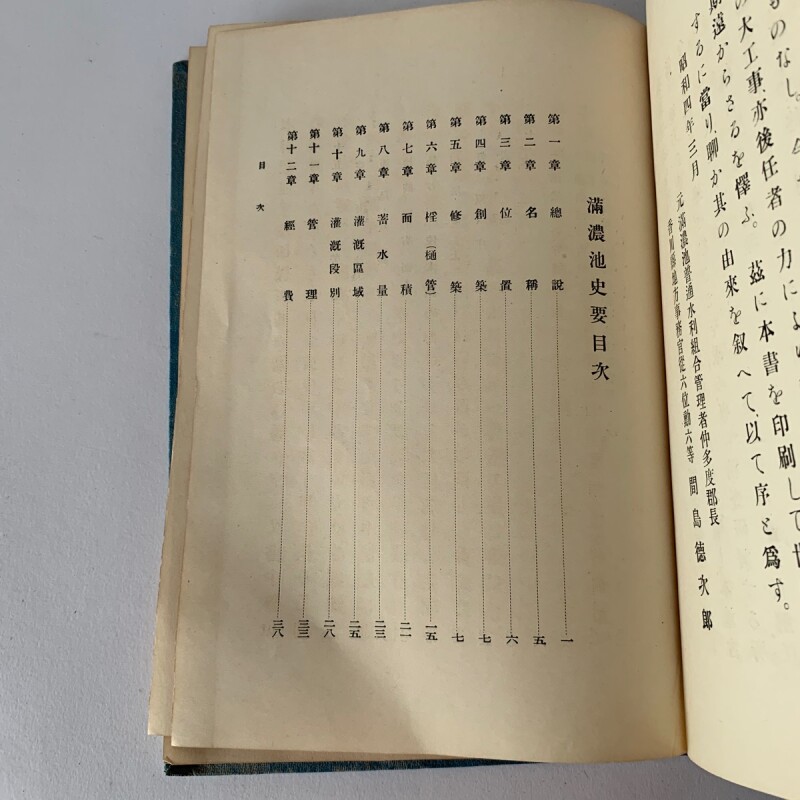 ものなし。
の大工事、亦後任者の力により
期遠からさるを懌ふ。玆に本書を印刷して世
するに當り、聊か其の由來を叙へて、以て序と爲す。
昭和四年三月
元滿濃池普通水利組合管理者仲多度郡長
香川縣地方事務官從六位勳六等 間島德次郎
滿濃池史要目次
第一章 總說 一
第二章 名稱 五
第三章 位置 六
第四章 創築 七
第五章 修築 七
第六章 楻(樋管) 一五
第七章 面積 二一
第八章 蓄水量 二三
第九章 灌漑區域 二五
第十章 灌漑段別 二八
第十一章 管理 三三
第十二章 經費 三八
目次